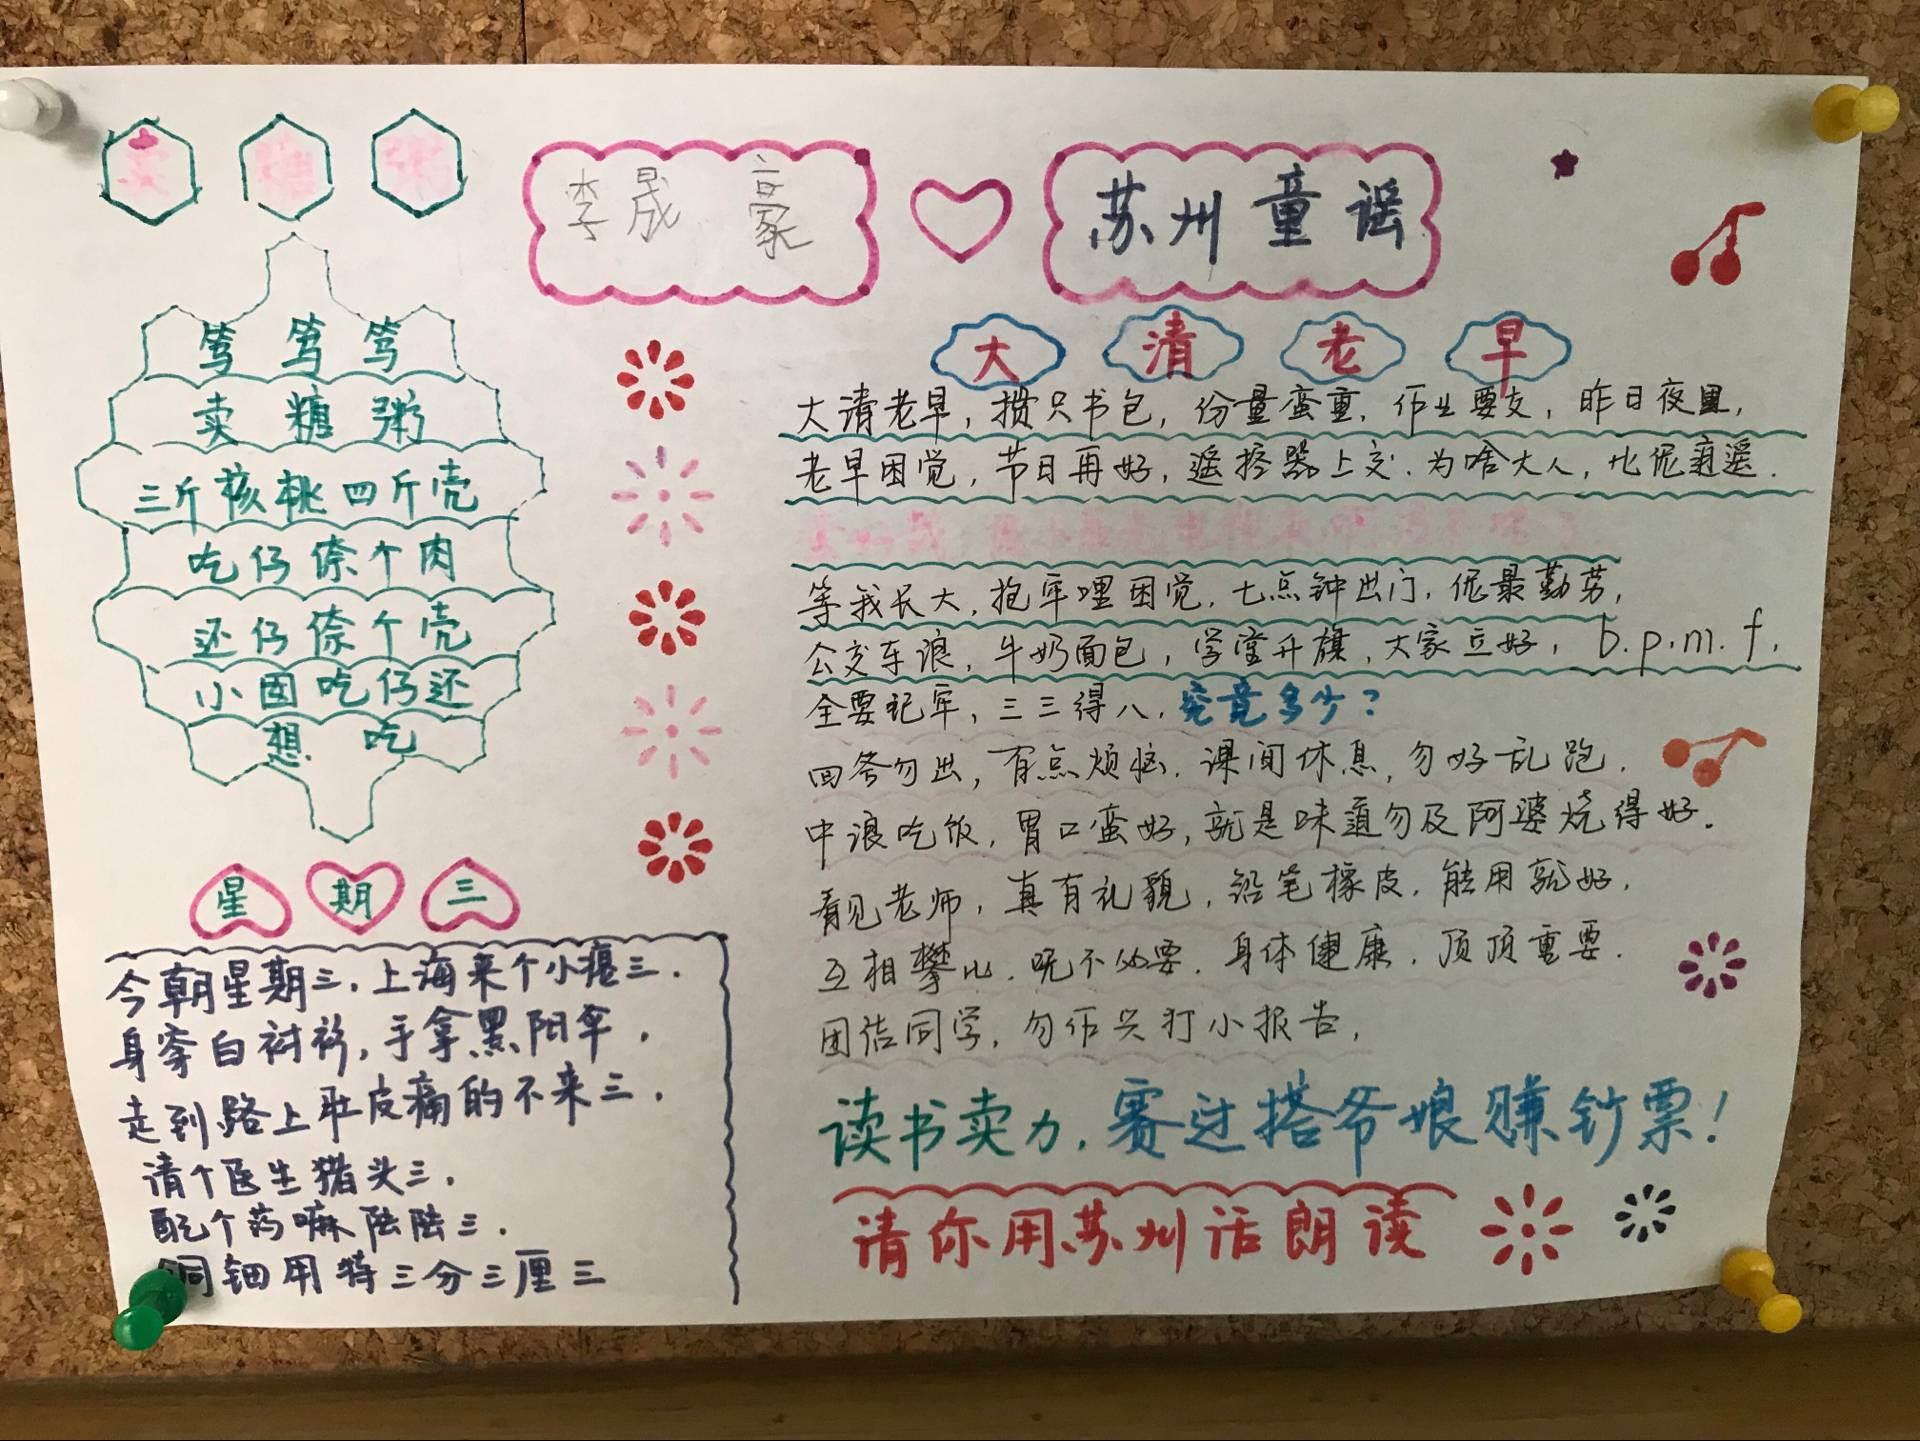 卖 糖 粥
李晟 豪
苏州童谣
笃 笃 笃
卖 糖 粥
三斤核桃四斤壳
吃仔倷个肉
还仔倷个壳
小囡吃仔还
想 吃
星 期 三
今朝星期三,上海来个小瘪三.
身穿白衬衫,手拿黑阳伞,
走到路上肚皮痛的不来三,
请个医生猪头三,
配个药嘛陆陆三.
铜钿用特三分三厘三
大 清 老 早
大清老早,掼只书包,份量蛮重,作业要交,昨日夜里,
老早困觉,节日再好,遥控器上交.为啥大人,比伲逍遥.
等我长大,抱牢哩困觉,七点钟出门,伲最勤劳,
公交车浪,牛奶面包,学堂升旗,大家立好,b.p.m.f,
全要记牢,三三得八,究竟多少?
回答勿出,有点烦恼.课间休息,勿好乱跑.
中浪吃饭,胃口蛮好,就是味道勿及阿婆烧得好.
看见老师,真有礼貌,铅笔橡皮,能用就好,
互相攀比,呒不必要.身体健康,顶顶重要.
团结同学,勿作兴打小报告,
读书卖力,赛过搭爷娘赚钞票!
请你用苏州话朗读